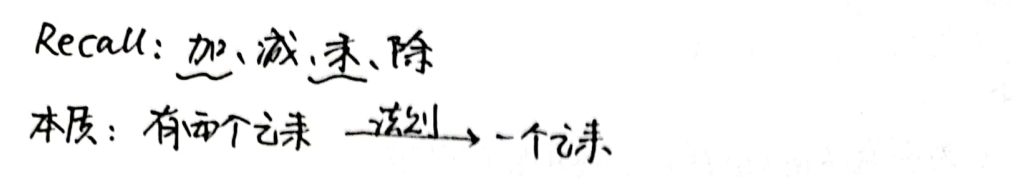 Recall: 加、减、乘、除
本质: 有两个元素 法则→ 一个元素